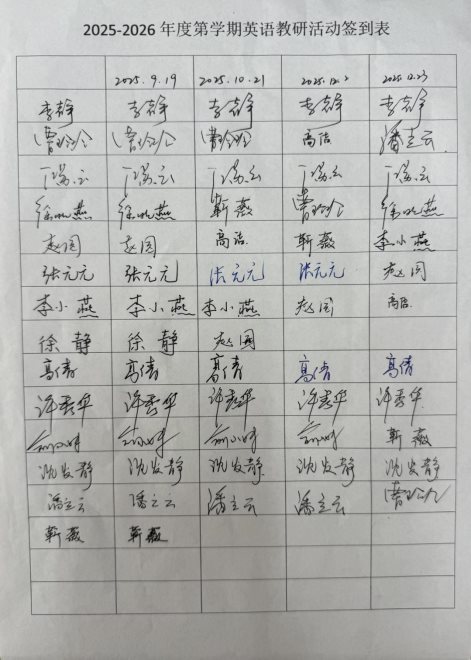 2025-2026 年度第学期英语教研活动签到表
2025.9.19 2025.10.21 2025.12.2 2025.12.23
李静 李静 李静 李静 李静
曹玲玲 曹玲玲 曹玲玲 高洁 潘立云
丁瑞云 丁瑞云 丁瑞云 丁瑞云 丁瑞云
徐晓燕 徐晓燕 靳薇 曹玲玲 徐晓燕
赵园 赵园 高洁 靳薇 李小燕
张元元 张元元 张元元 张元元 赵园
李小燕 李小燕 李小燕 赵园 高洁
徐静 徐静 赵园
高倩 高倩 高倩 高倩 高倩
许秀华 许秀华 许秀华 许秀华 许秀华
靳薇
沈发静 沈发静 沈发静 沈发静 沈发静
潘立云 潘立云 潘立云 潘立云 曹玲玲
靳薇 靳薇